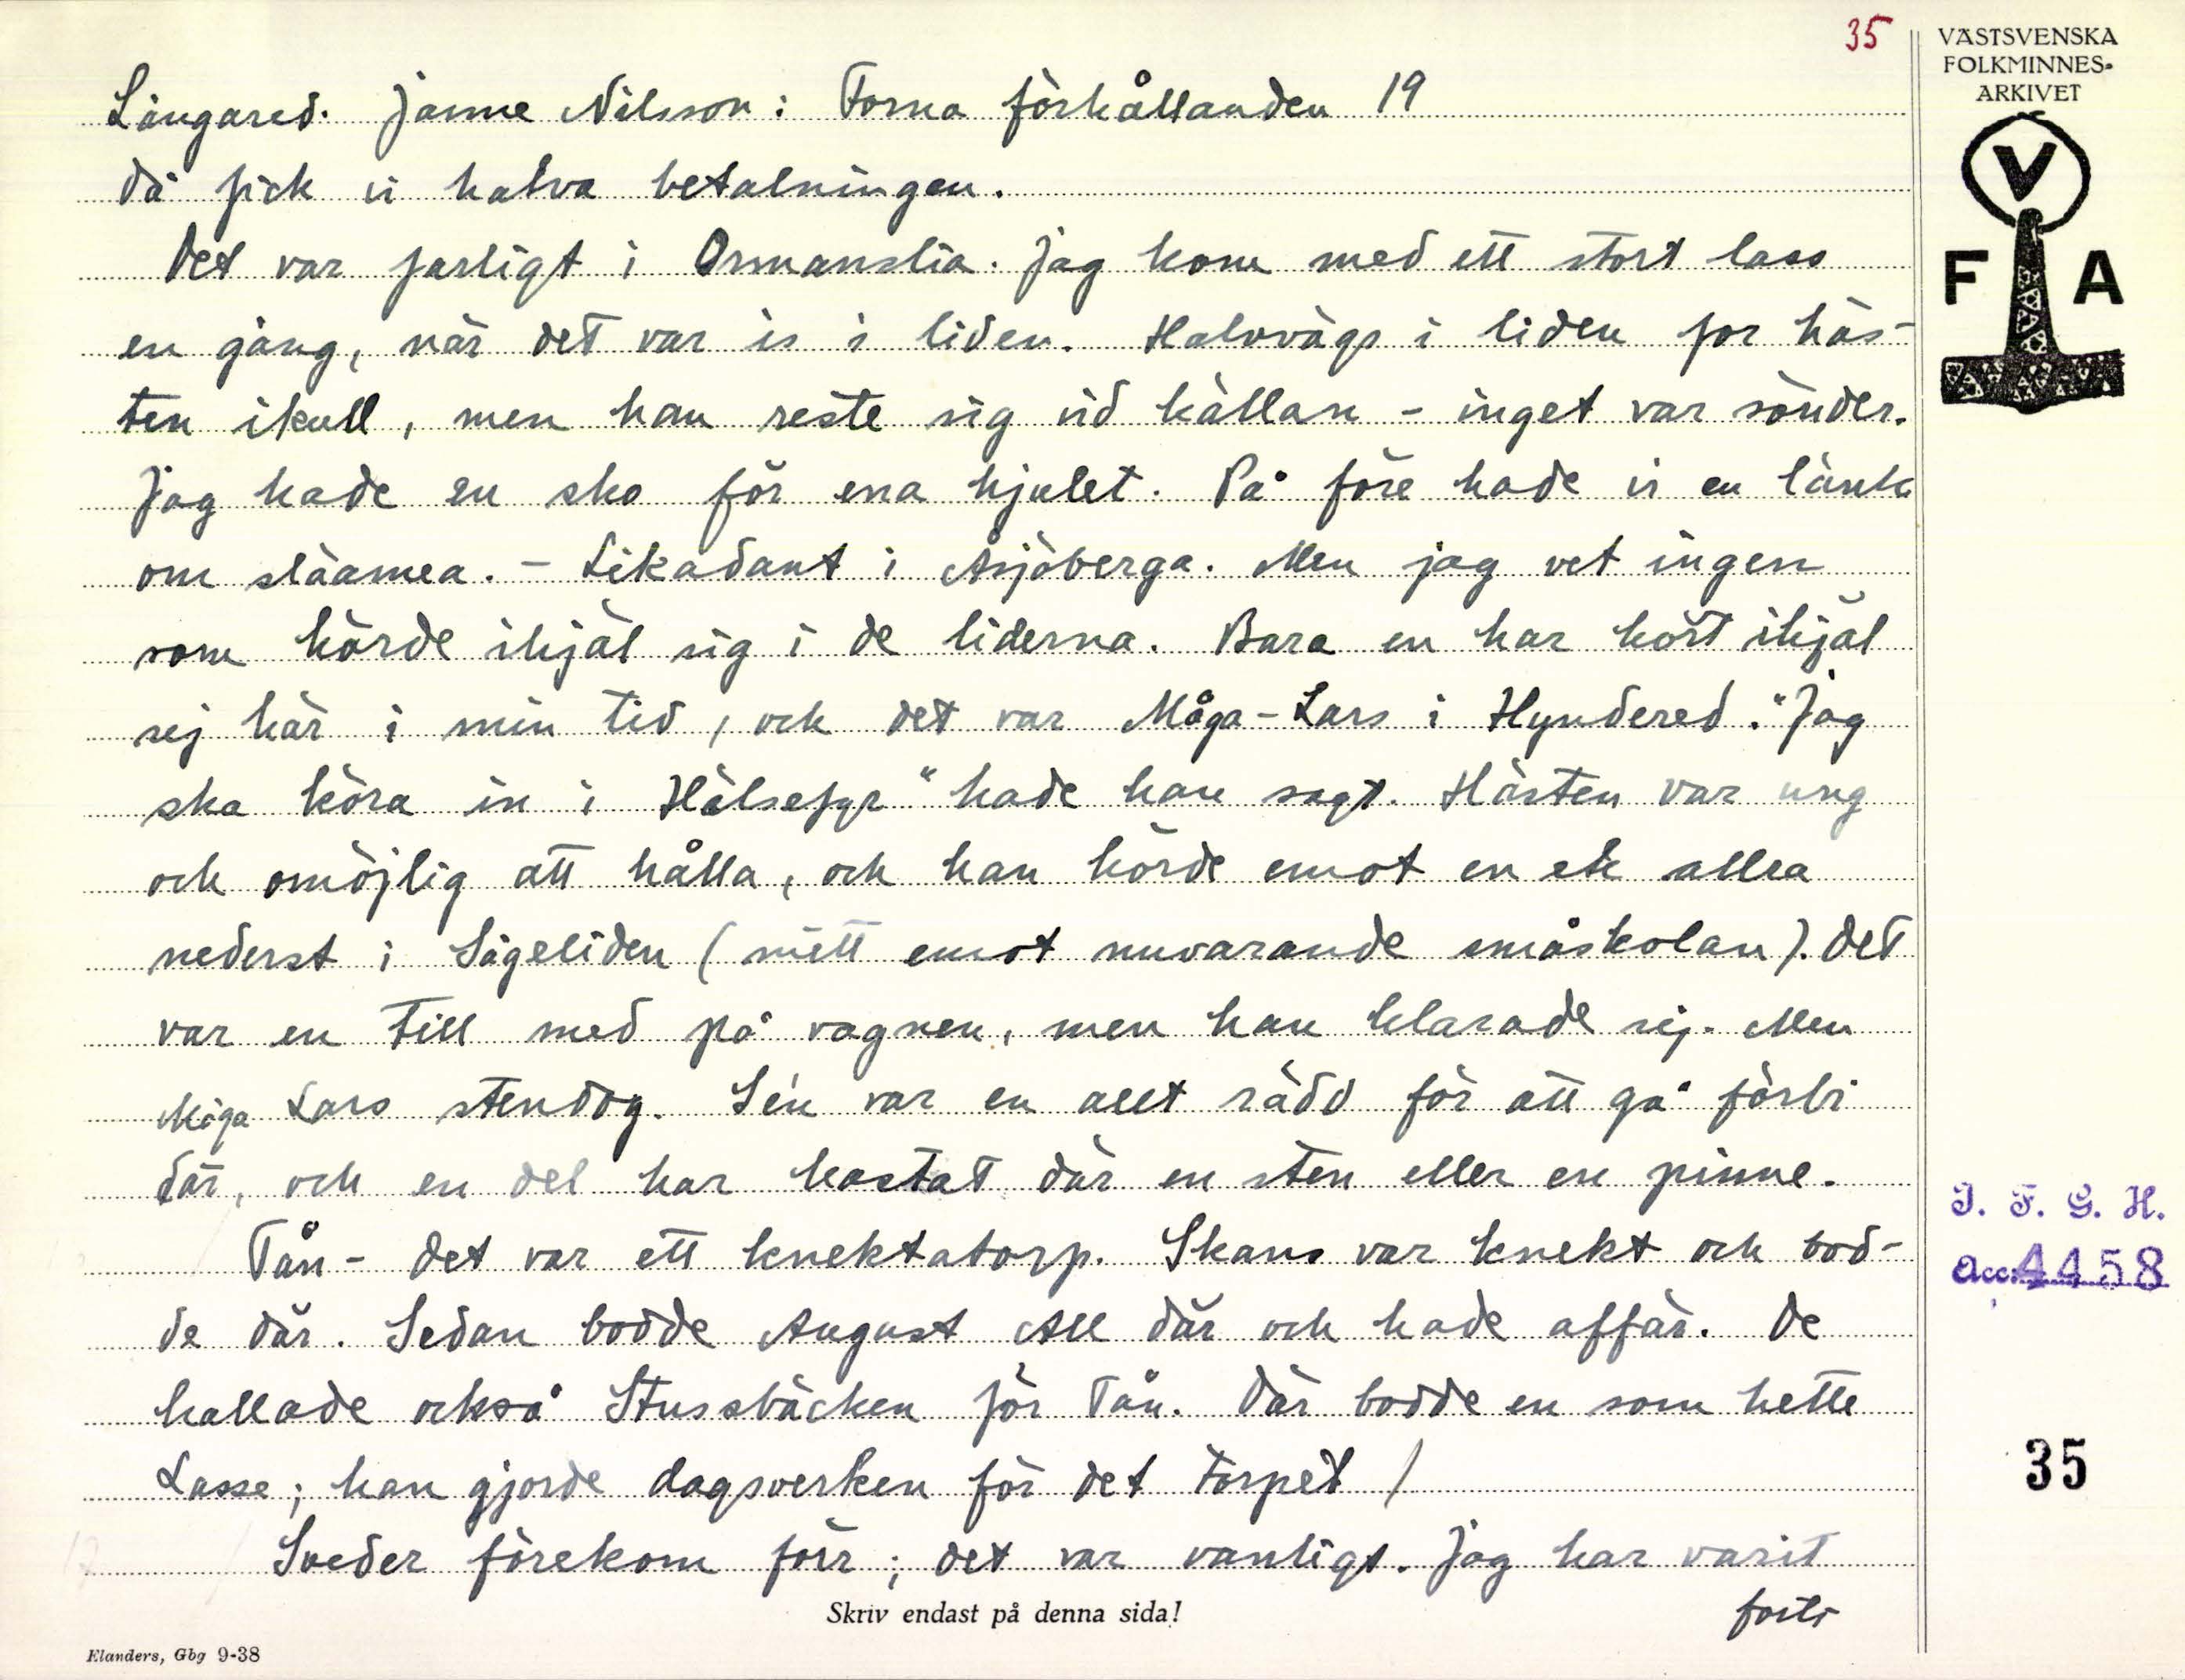 35
VÄSTSVENSKA
FOLKMINNES-
ARKIVET
V
F A
Långared. Janne Nilsson: Forna förhållanden 19
då fick vi halva betalningen.
Det var farligt i Ormanslia. Jag kom med ett stort lass
en gång, när det var is i liden. Halvvägs i liden for häs-
ten ikull, men han reste sig vid källan - inget var sönder.
Jag hade en sko för ena hjulet. På före hade vi en länk
om släamea. - Likadant i Åsjöberga. Men jag vet ingen
som körde ihjäl sig i de liderna. Bara en har kört ihjäl
sej här i min tid, och det var Måga-Lars i Hyndered. "Jag
ska köra in i Hälsefyr" hade han sagt. Hästen var ung
och omöjlig att hålla, och han körde emot en ek allra
nederst i Sågeliden (mitt emot nuvarande småskolan). Det
var en till med på vagnen, men han klarade sig. Men
Måga Lars stendog. Sén var en allt rädd för att gå förbi
där, och en del har kastat där en sten eller en pinne.
Tån - det var ett knektatorp. Skans var knekt och bod-
de där. Sedan bodde August All där och hade affär. De
kallade också Stussbäcken för Tån. Där bodde en som hette
Lasse; han gjorde dagsverken för det torpet /
Sveder förekom förr; det var vanligt. Jag har varit
forts
Skriv endast på denna sida!
Elanders, Gbg 9-38
I. F. G. H.
Acc. 4458
35